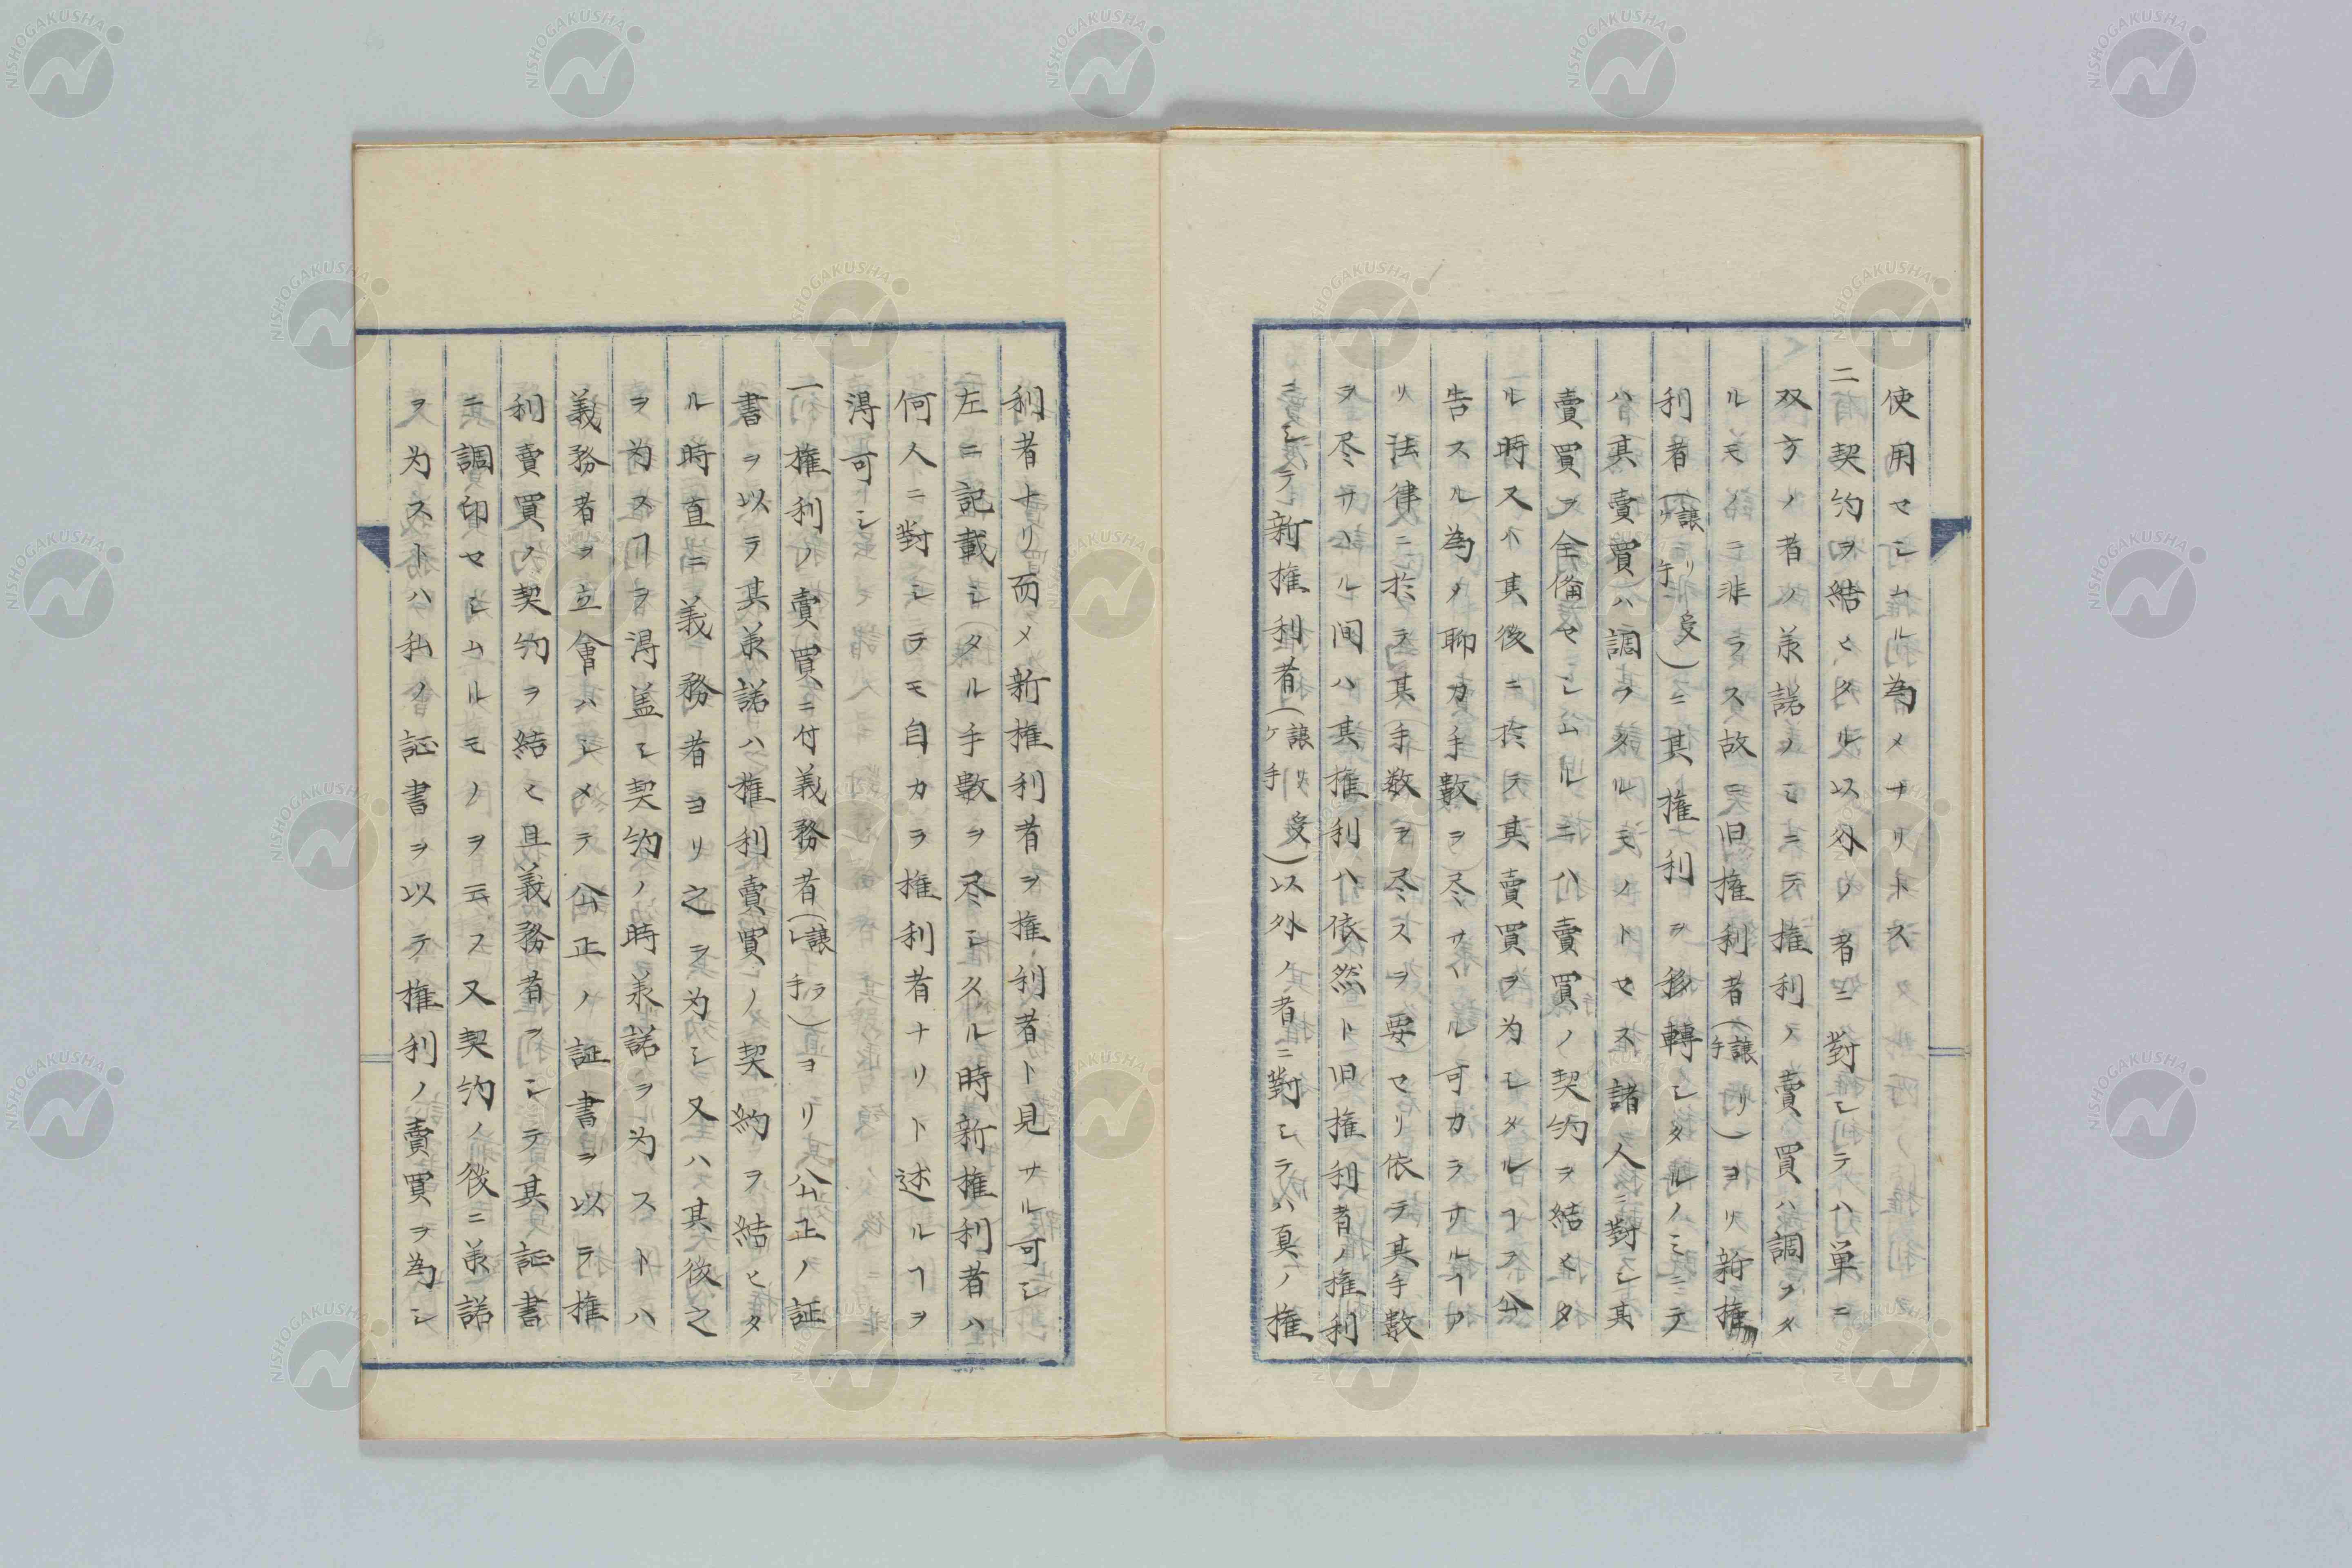 使用セシムル為メナリトス
二契約ヲ結ヒタル以外ノ者ニ對シテハ単ニ
双方ノ者ノ承諾ノミニテ権利ノ賣買ハ調フタ
ルモノニ非ラス故ニ旧権利者(譲リ手)ヨリ新権
利者(譲リ受ケ手)ニ其権利ヲ移轉シタルノミニテ
ハ其賣買ハ調フタルモノトセス諸人ニ對シ其
賣買ヲ全備セシムルニハ賣買ノ契約ヲ結ヒタ
ル時又ハ其後ニ於テ其賣買ヲ为シタルヿヲ公
告スル為メ聊カ手數ヲ尽サヽル可カラサルヿア
リ法律ニ於テ其手数ヲ尽スヲ要セリ依テ其手數
ヲ尽サヽル间ハ其権利ハ依然ト旧権利者ノ権利
ニシテ新権利者(譲リ受ケ手)以外ノ者ニ對シテハ真ノ権
利者ナリ而メ新権利者ヲ権利者ト見サル可シ
左ニ記載シタル手數ヲ尽シタル時新権利者ハ
何人ニ對シテモ自カラ権利者ナリト述ルヿヲ
得可シ
一権利ノ賣買ニ付義務者(譲ラレ手)ヨリ公正ノ証
書ヲ以テ其承諾ハ権利賣買ノ契約ヲ結ヒタ
ル時直ニ義務者ヨリ之ヲ为シ又ハ其後之
ヲ为スヿヲ得盖シ契約ノ時承諾ヲ为ストハ
義務者ヲ立會ハシメテ公正ノ証書ヲ以テ権
利賣買ノ契約ヲ結ヒ且義務者シテ其証書
ニ調印セシムルモノヲ云ス又契約ノ後ニ承諾
ヲ为ストハ私ノ証書ヲ以テ権利ノ賣買ヲ為シ
NISHOGAKUSHA